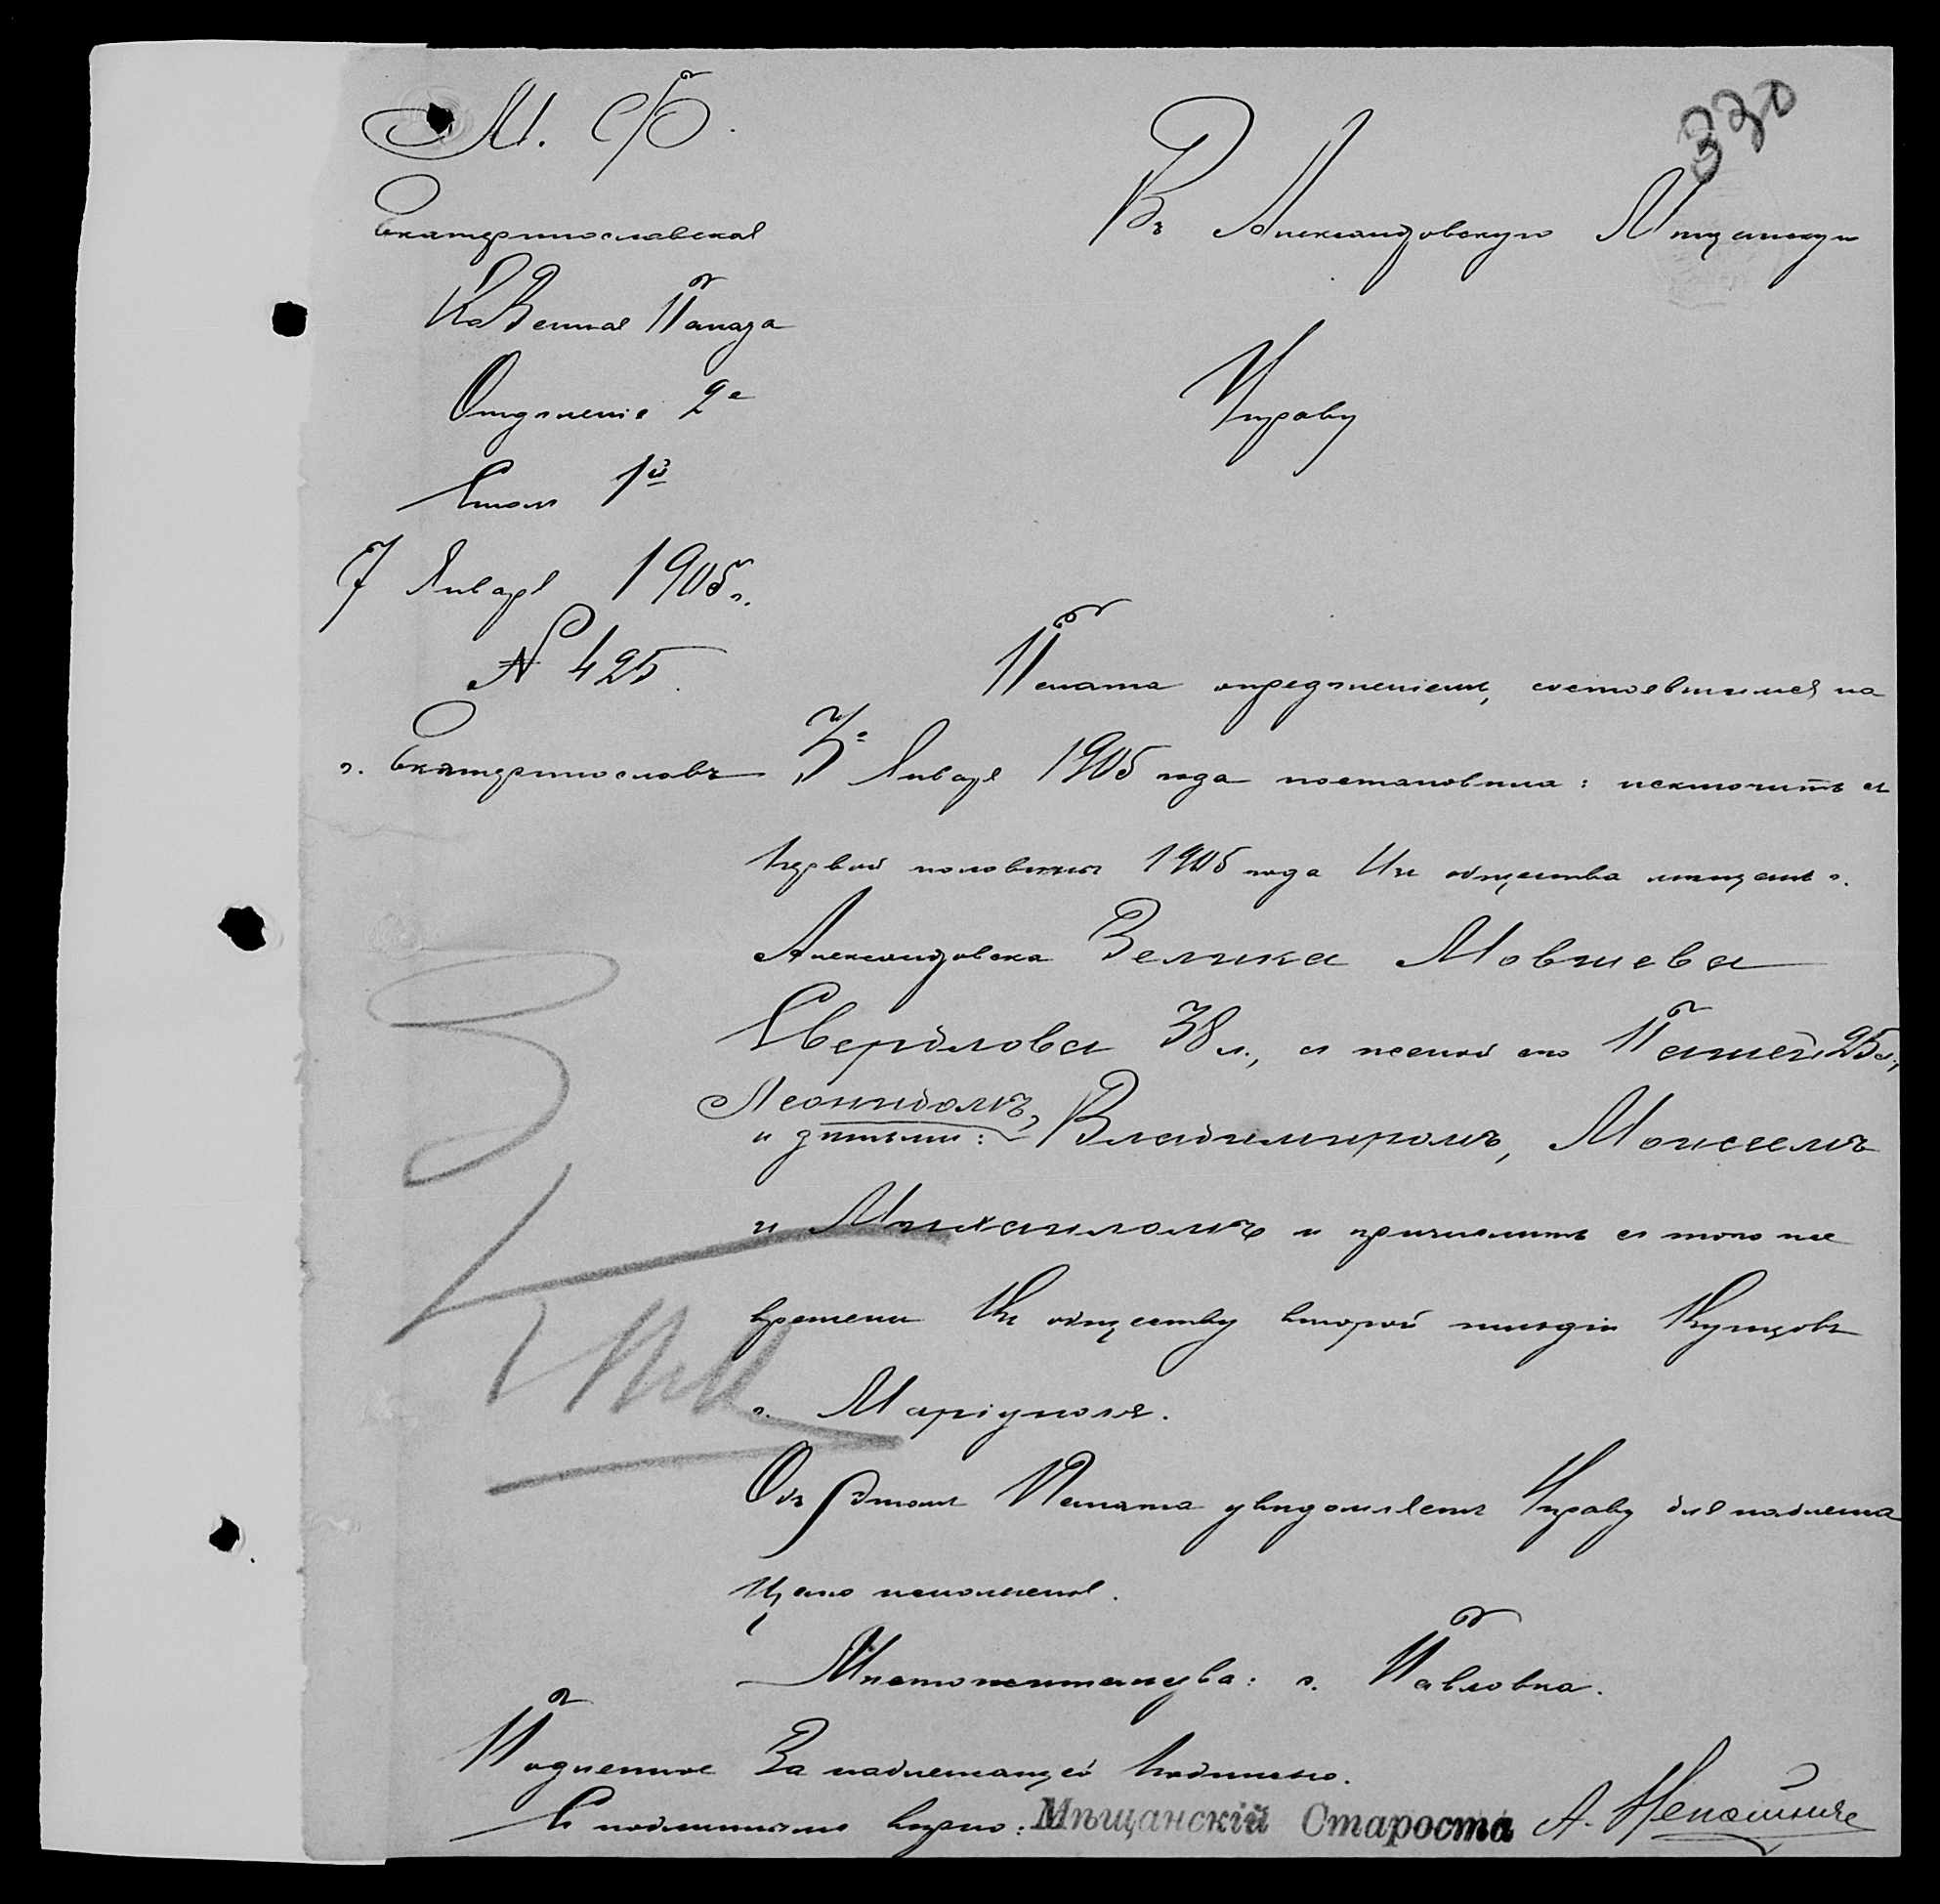 М. Ф.
330
Екатеринославская
Казенная Палата
Отдѣленіе 2е
Столъ 1й
7 Января 1905 г.
№ 425
г. Екатеринославъ
Въ Александровскую Мѣщанскую
Управу
Палата опредѣленіемъ, состоявшимся на
3е Января 1905 года постановила: исключить съ
первой половины 1905 года Изъ общества мѣщанъ г.
Александровска Зелика Мовшева
Свердлова 38 л., съ женой его Пашей 25 л.,
Леонидомъ,
и дѣтьми: Владимиромъ, Моисеемъ
и Михаиломъ и причислить съ того же
времени Къ обществу второй гильдіи Купцовъ
г. Маріуполя.
Объ этомъ Палата увѣдомляетъ Управу для надлежа
щаго исполненія.
Мѣстожительство: с. Павловка.
Подлинное За надлежащей подписью.
Съ подлиннымъ вѣрно: Мѣщанскій Староста А.